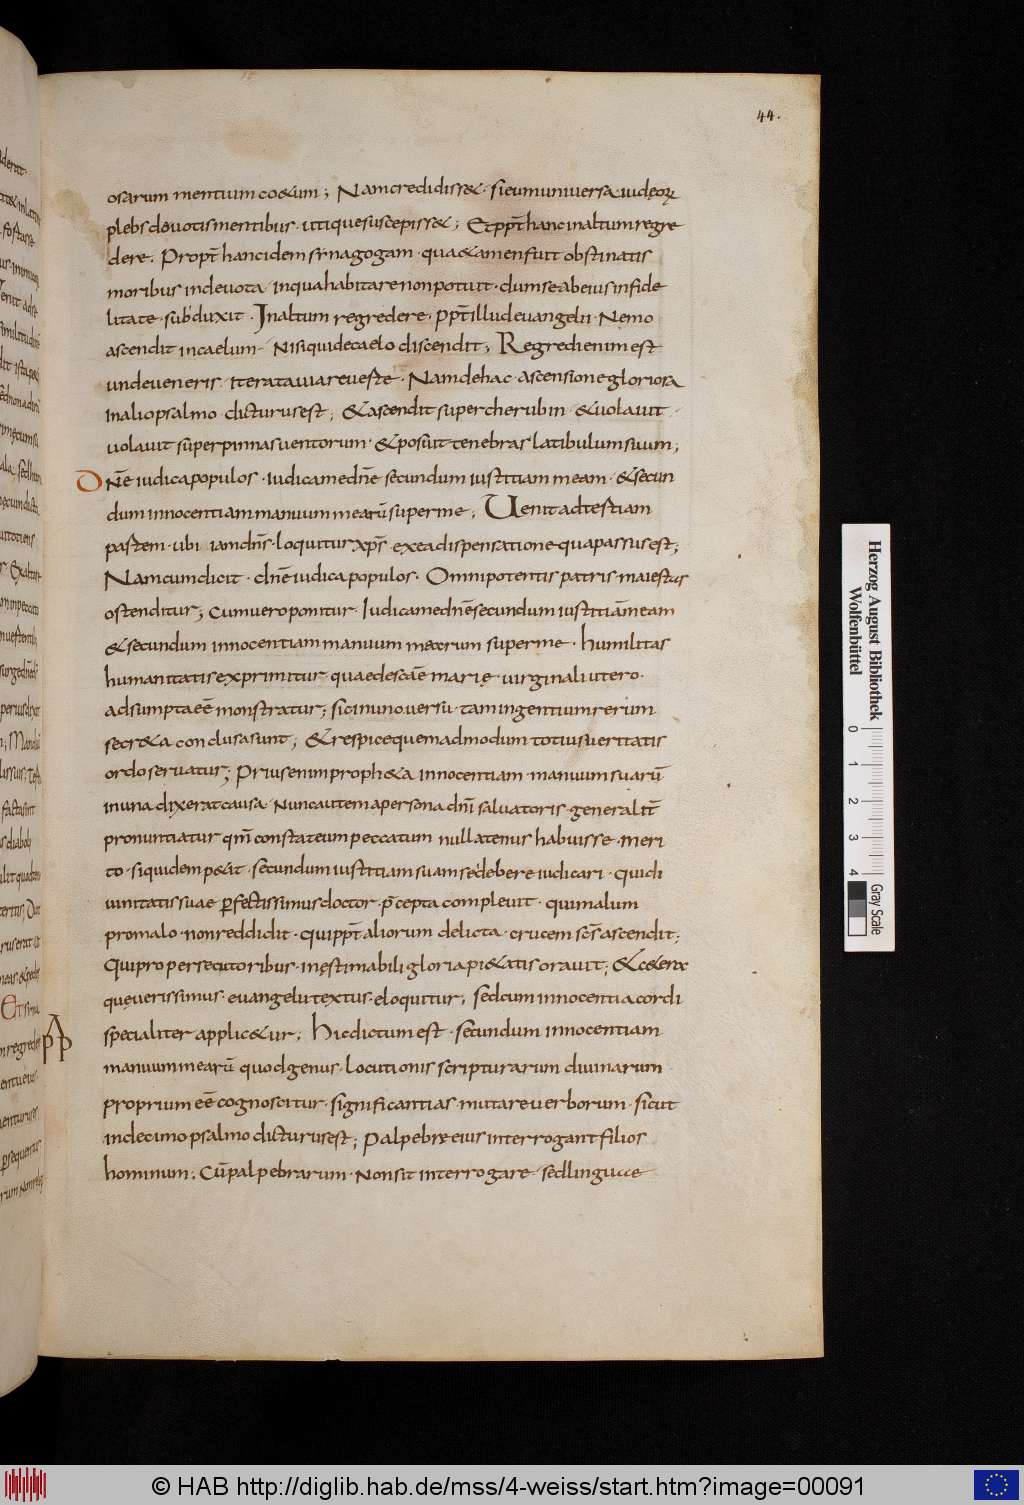 44.
osarum mentium co&um; Nam credidiss& · si eum universa iudęorꝝ
plebs devotis mentibus · utique suscepiss&; Et ppt̄ hanc in altum regre
dere. Propt̄ hanc idem synagogam · qua& amen fuit obstinatis
moribus indevota in qua habitare non potuit · dum se ab eius infide
litate · subduxit · In altum regredere · ppt̄ illud evangelii · Nemo
ascendit in caelum · Nisi qui de caelo discendit; Regredi enim est
unde veneris · iterata via revesti · Nam de hac · ascensione gloriosa
in alio psalmo · dicturus est; & ascendit super cherubin · & volavit ·
volavit super pinnas ventorum · & posuit tenebras latibulum suum;
Dne iudica populos · iudica me dn̄e secundum iustitiam meam · & secun
dum innocentiam manuum mearū super me; Venit ad tertiam
partem · ubi iam dn̄s · loquitur xp̄s ex ea dispensatione qua passus est;
Nam cum dicit · dn̄e iudica populos · Omnipotentis patris maiestas
ostenditur; Cum vero ponitur · Iudica me dn̄e secundum iustitiā meam
& secundum innocentiam manuum mearum super me · humilitas
humanitatis exprimitur quae de sc̄ae marię · virginali utero ·
adsumpta eē monstratur; sic in uno versu · tam ingentium rerum
secr&a conclusa sunt; & respice quemadmodum totius veritatis
ordo servatur; Prius enim proph&a innocentiam · manuum suarū
in una dixerat causa · Nunc autem a persona dn̄i salvatoris · generalit̄
pronuntiatur qm̄ constat eum peccatum nullatenus habuisse · meri
to · siquidem p&it · secundum iustitiam suam se debere iudicari · Qui di
vinitatis suae perfectissimus doctor · p̄cepta complevit · qui malum
pro malo · non reddidit · Qui ppt̄ aliorum delicta · crucem sc̄s ascendit;
Qui pro persecutoribus · inęstimabili gloria pi&atis oravit; & c&era
quę verissimus · evangelii textus · eloquitur; sed cum innocentia cordi
specialiter applic&ur; Hic dictum est · secundum innocentiam
manuum mearū quod genus · locutionis scripturarum divinarum
proprium eē cognoscitur · significantias · mutare verborum · sicut
in decimo psalmo dicturus est; Palpebrae eius interrogant filios
hominum; Cū palpebrarum · Non sit interrogare sed linguae
Herzog August Bibliothek
Wolfenbüttel
0 1 2 3 4
Gray Scale
© HAB http://diglib.hab.de/mss/4-weiss/start.htm?image=00091